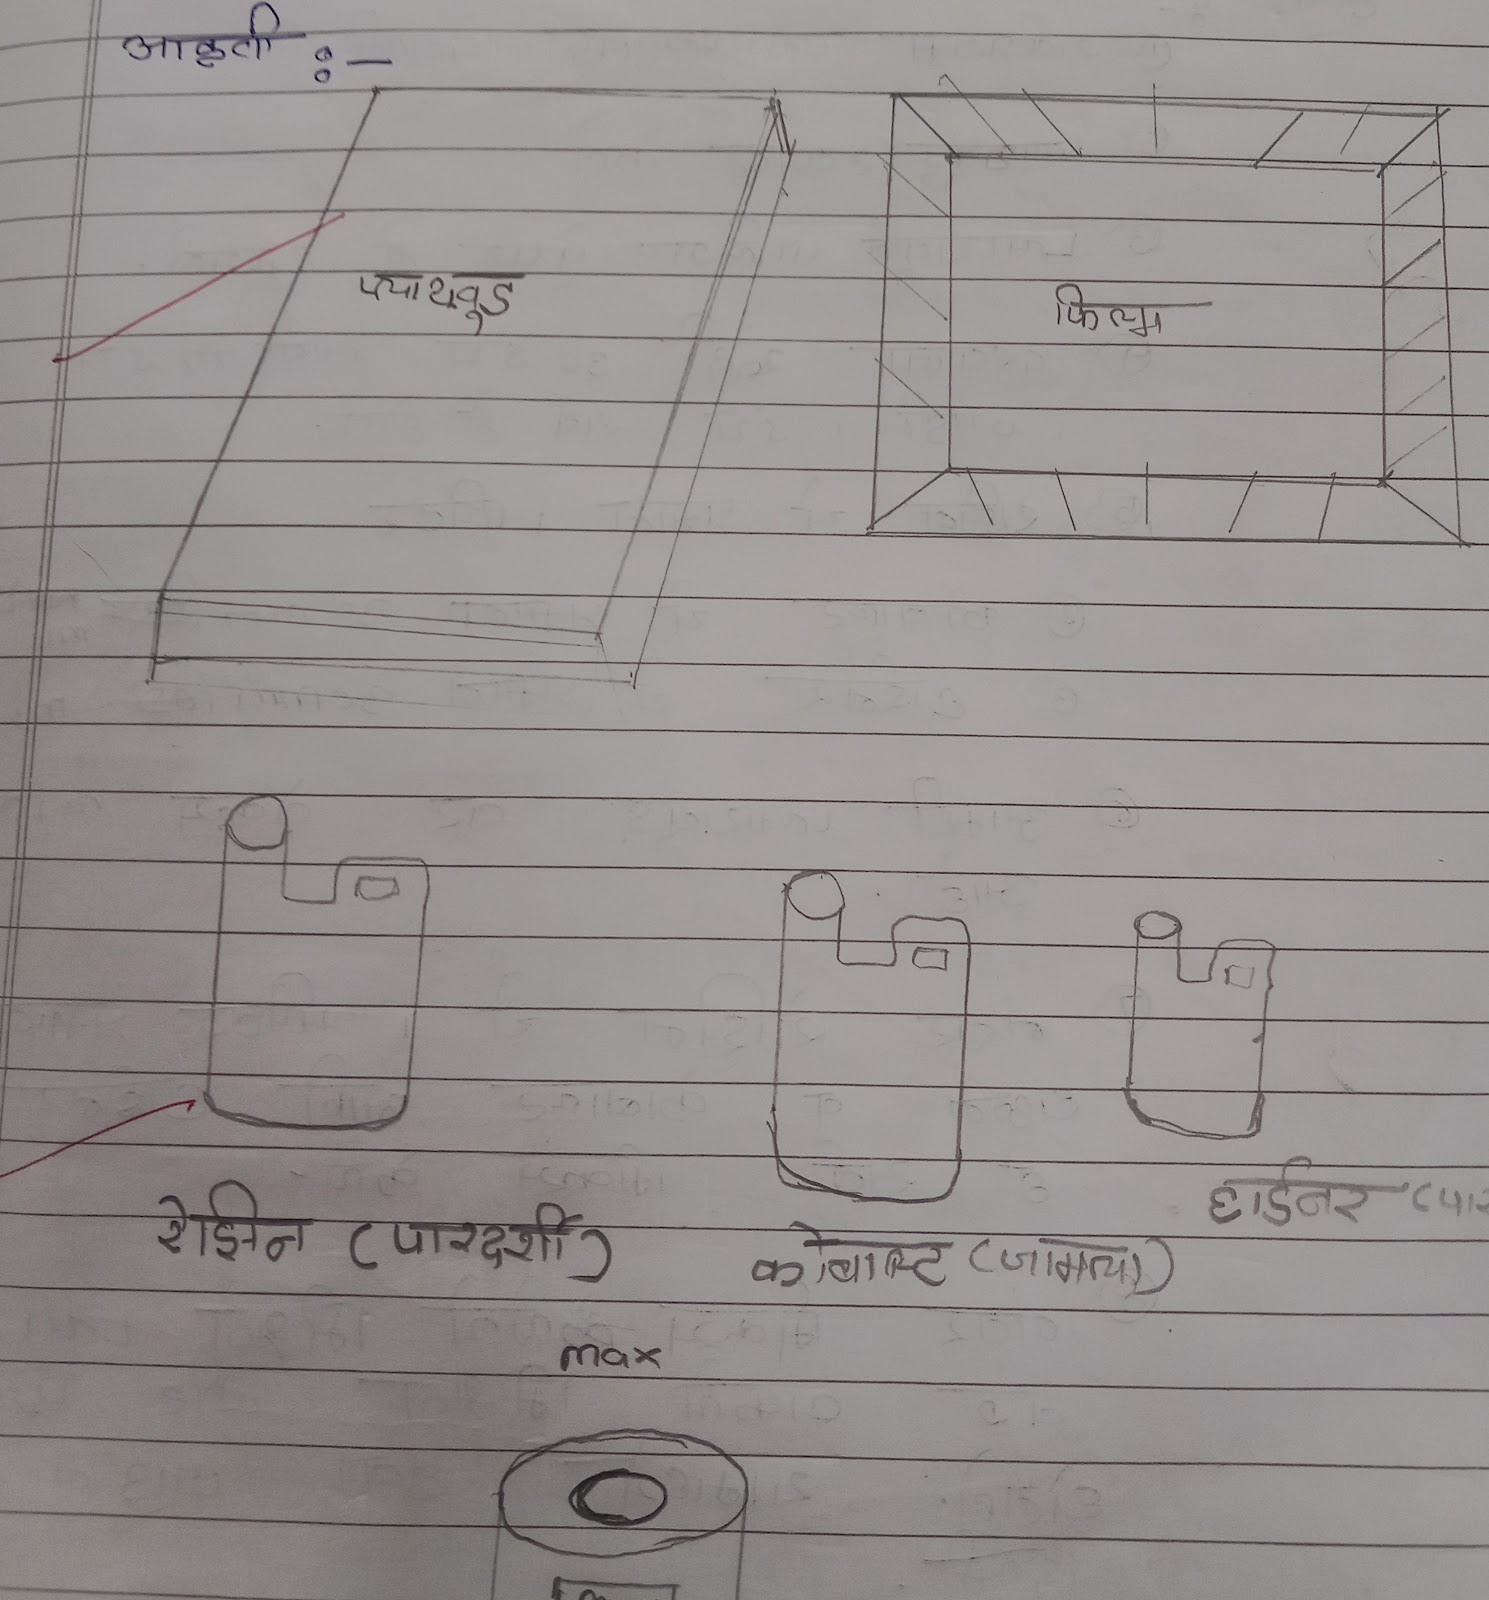 आकृती :-
प्यायवूड
फिल्म
रेझिन (पारदर्शी)
कोबाल्ट (जामत्या)
हार्डनर (पार
max